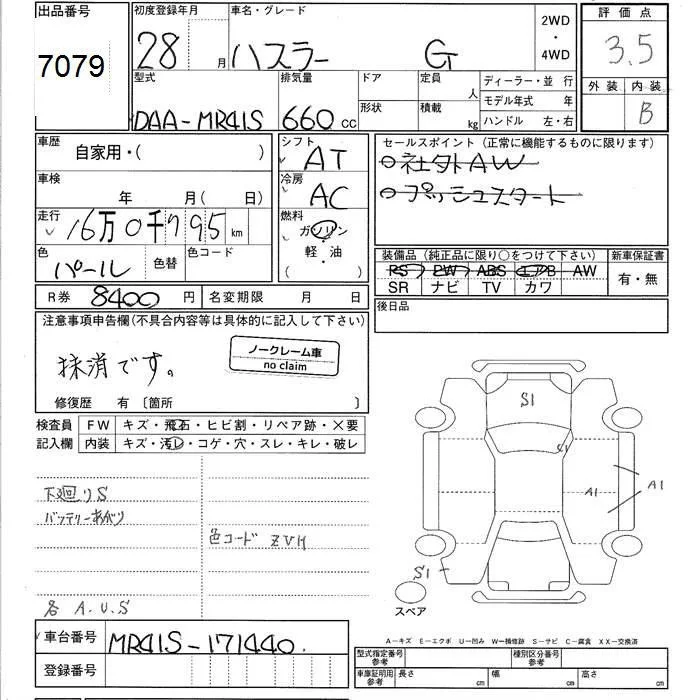 出品番号 初度登録年月 車名・グレード 2WD・4WD 評価点
7079 28 月 ハスラー G 3.5
型式 排気量 ドア 定員 人 ディーラー・並 行 外装 内装
DAA-MR41S 660 cc 形状 積載 kg モデル年式 年 B
ハンドル 左・右
車歴 自家用・( ) シフト AT セールスポイント (正常に機能するものに限ります)
車検 年 月( 日) 冷房 AC ○社外AW
○プッシュスタート
走行 16万0千795 km 燃料 ガソリン
軽・油
( )
色 パール 色替 色コード
装備品 (純正品に限り○をつけて下さい) 新車保証書
PS PW ABS エアB AW 有・無
SR ナビ TV カワ
R券 8400 円 名変期限 月 日 後日品
注意事項申告欄(不具合内容等は具体的に記入して下さい)
抹消です。
ノークレーム車
no claim
修復歴 有 〔箇所 〕
検査員 FW キズ・飛石・ヒビ割・リペア跡・×要
記入欄 内装 キズ・汚レ・コゲ・穴・スレ・キレ・破レ
下廻りS
バッテリーあがり
色コード ZVH
各 A.U.S
S1
S1
A1 A1
S1
スペア
A-キズ E-エクボ U-凹み W-補修跡 S-サビ C-腐食 XX-交換済
車台番号 MR41S-171440
登録番号
型式指定番号 参考 種別区分番号 参考
車庫証明用 参考 長さ cm 幅 cm 高さ cm